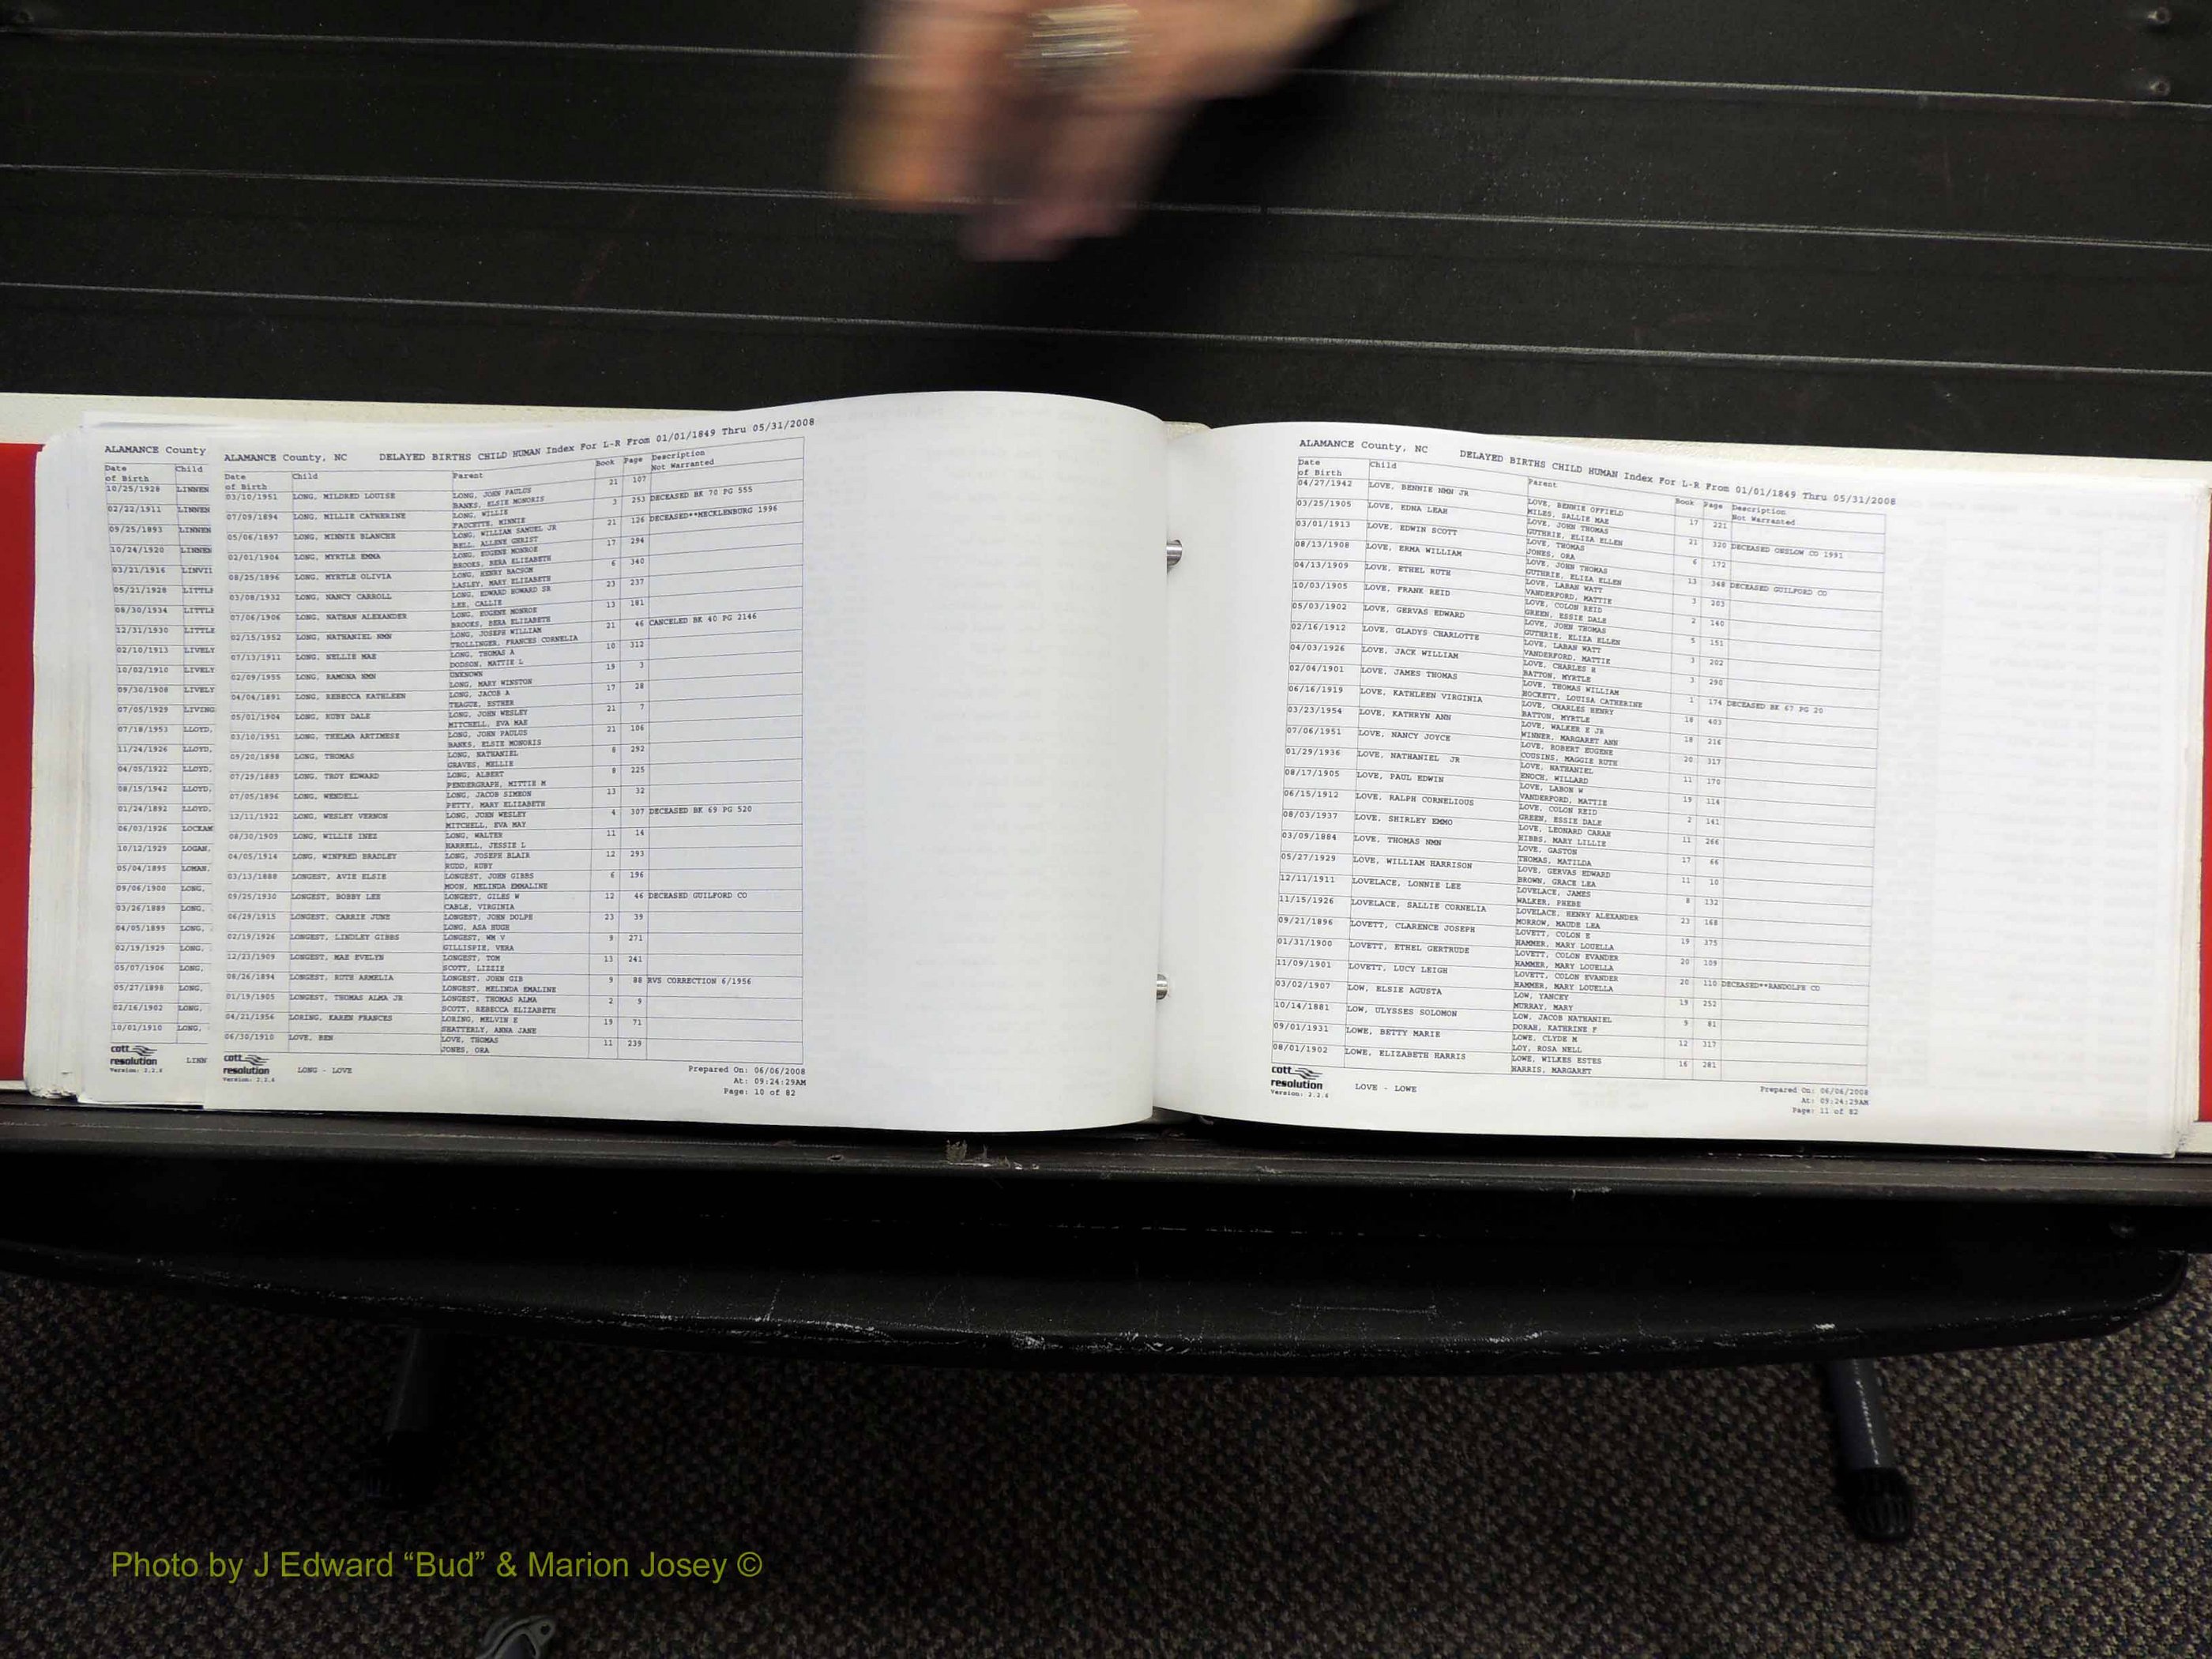 ALAMANCE County
Date
of Birth Child
10/25/1928 LINNEN
02/22/1911 LINNEN
09/25/1893 LINNEN
10/24/1920 LINNEN
03/21/1916 LINVII
05/21/1928 LITTLE
08/30/1934 LITTLE
12/31/1930 LITTLE
02/10/1913 LIVELY
10/02/1910 LIVELY
09/30/1908 LIVELY
07/05/1929 LIVING
07/18/1953 LLOYD,
11/24/1926 LLOYD,
04/05/1922 LLOYD,
08/15/1942 LLOYD,
01/24/1892 LLOYD,
06/03/1926 LOCKAM
10/12/1929 LOGAN,
05/04/1895 LOMAN,
09/06/1900 LONG,
03/26/1889 LONG,
04/05/1899 LONG,
02/19/1929 LONG,
05/07/1906 LONG,
05/27/1898 LONG,
02/16/1902 LONG,
10/01/1910 LONG,
cott
resolution LINN
Version: 2.2.6
ALAMANCE County, NC DELAYED BIRTHS CHILD HUMAN Index For L-R From 01/01/1849 Thru 05/31/2008
Date of Birth Child Parent Book Page Description
Not Warranted
03/10/1951 LONG, MILDRED LOUISE LONG, JOHN PAULUS 21 107
BANKS, ELSIE MONORIS
07/09/1894 LONG, MILLIE CATHERINE LONG, WILLIE 3 253 DECEASED BK 70 PG 555
FAUCETTE, MINNIE
05/06/1897 LONG, MINNIE BLANCHE LONG, WILLIAM SAMUEL JR 21 126 DECEASED**MECKLENBURG 1996
BELL, ALLENE CHRIST
02/01/1904 LONG, MYRTLE EMMA LONG, EUGENE MONROE 17 294
BROOKS, BERA ELIZABETH
08/25/1896 LONG, MYRTLE OLIVIA LONG, HENRY BACSOM 6 340
LASLEY, MARY ELIZABETH
03/08/1932 LONG, NANCY CARROLL LONG, EDWARD HOWARD SR 23 237
LEE, CALLIE
07/06/1906 LONG, NATHAN ALEXANDER LONG, EUGENE MONROE 13 181
BROOKS, BERA ELIZABETH
02/15/1952 LONG, NATHANIEL NMN LONG, JOSEPH WILLIAM 21 46 CANCELED BK 40 PG 2146
TROLLINGER, FRANCES CORNELIA
07/13/1911 LONG, NELLIE MAE LONG, THOMAS A 10 312
DODSON, MATTIE L
02/09/1955 LONG, RAMONA NMN UNKNOWN 19 3
LONG, MARY WINSTON
04/04/1891 LONG, REBECCA KATHLEEN LONG, JACOB A 17 28
TEAGUE, ESTHER
05/01/1904 LONG, RUBY DALE LONG, JOHN WESLEY 21 7
MITCHELL, EVA MAE
03/10/1951 LONG, THELMA ARTIMESE LONG, JOHN PAULUS 21 106
BANKS, ELSIE MONORIS
09/20/1898 LONG, THOMAS LONG, NATHANIEL 8 292
GRAVES, MELLIE
07/29/1889 LONG, TROY EDWARD LONG, ALBERT 8 225
PENDERGRAPH, MITTIE M
07/05/1896 LONG, WENDELL LONG, JACOB SIMEON 13 32
PETTY, MARY ELIZABETH
12/11/1922 LONG, WESLEY VERNON LONG, JOHN WESLEY 4 307 DECEASED BK 69 PG 520
MITCHELL, EVA MAY
08/30/1909 LONG, WILLIE INEZ LONG, WALTER 11 14
HARRELL, JESSIE L
04/05/1914 LONG, WINFRED BRADLEY LONG, JOSEPH BLAIR 12 293
RUDD, RUBY
03/13/1888 LONGEST, AVIE ELSIE LONGEST, JOHN GIBBS 6 196
MOON, MELINDA EMMALINE
09/25/1930 LONGEST, BOBBY LEE LONGEST, GILES W 12 46 DECEASED GUILFORD CO
CABLE, VIRGINIA
06/29/1915 LONGEST, CARRIE JUNE LONGEST, JOHN DOLPH 23 39
LONG, ASA HUGH
02/19/1926 LONGEST, LINDLEY GIBBS LONGEST, WM V 9 271
GILLISPIE, VERA
12/23/1909 LONGEST, MAE EVELYN LONGEST, TOM 13 241
SCOTT, LIZZIE
08/26/1894 LONGEST, RUTH ARMELIA LONGEST, JOHN GIB 9 88 RVS CORRECTION 6/1956
LONGEST, MELINDA EMALINE
01/19/1905 LONGEST, THOMAS ALMA JR LONGEST, THOMAS ALMA 2 9
SCOTT, REBECCA ELIZABETH
04/21/1956 LORING, KAREN FRANCES LORING, MELVIN E 19 71
SHATTERLY, ANNA JANE
06/30/1910 LOVE, BEN LOVE, THOMAS 11 239
JONES, ORA
cott
resolution LONG - LOVE Prepared On: 06/06/2008
Version: 2.2.6 At: 09:24:29AM
Page: 10 of 82
ALAMANCE County, NC DELAYED BIRTHS CHILD HUMAN Index For L-R From 01/01/1849 Thru 05/31/2008
Date of Birth Child Parent Book Page Description
Not Warranted
04/27/1942 LOVE, BENNIE NMN JR LOVE, BENNIE OFFIELD 17 221
MILES, SALLIE MAE
03/25/1905 LOVE, EDNA LEAH LOVE, JOHN THOMAS 21 320 DECEASED ONSLOW CO 1991
GUTHRIE, ELIZA ELLEN
03/01/1913 LOVE, EDWIN SCOTT LOVE, THOMAS 6 172
JONES, ORA
08/13/1908 LOVE, ERMA WILLIAM LOVE, JOHN THOMAS 13 348 DECEASED GUILFORD CO
GUTHRIE, ELIZA ELLEN
04/13/1909 LOVE, ETHEL RUTH LOVE, LABAN WATT 3 203
VANDERFORD, MATTIE
10/03/1905 LOVE, FRANK REID LOVE, COLON REID 2 140
GREEN, ESSIE DALE
05/03/1902 LOVE, GERVAS EDWARD LOVE, JOHN THOMAS 5 151
GUTHRIE, ELIZA ELLEN
02/16/1912 LOVE, GLADYS CHARLOTTE LOVE, LABAN WATT 3 202
VANDERFORD, MATTIE
04/03/1926 LOVE, JACK WILLIAM LOVE, CHARLES H 3 290
BATTON, MYRTLE
02/04/1901 LOVE, JAMES THOMAS LOVE, THOMAS WILLIAM 1 174 DECEASED BK 67 PG 20
HOCKETT, LOUISA CATHERINE
06/16/1919 LOVE, KATHLEEN VIRGINIA LOVE, CHARLES HENRY 18 403
BATTON, MYRTLE
03/23/1954 LOVE, KATHRYN ANN LOVE, WALKER E JR 18 216
WINNER, MARGARET ANN
07/06/1951 LOVE, NANCY JOYCE LOVE, ROBERT EUGENE 20 317
COUSINS, MAGGIE RUTH
01/29/1936 LOVE, NATHANIEL JR LOVE, NATHANIEL 11 170
ENOCH, WILLARD
08/17/1905 LOVE, PAUL EDWIN LOVE, LABON W 19 114
VANDERFORD, MATTIE
06/15/1912 LOVE, RALPH CORNELIOUS LOVE, COLON REID 2 141
GREEN, ESSIE DALE
08/03/1937 LOVE, SHIRLEY EMMO LOVE, LEONARD CARAH 11 266
HIBBS, MARY LILLIE
03/09/1884 LOVE, THOMAS NMN LOVE, GASTON 17 66
THOMAS, MATILDA
05/27/1929 LOVE, WILLIAM HARRISON LOVE, GERVAS EDWARD 11 10
BROWN, GRACE LEA
12/11/1911 LOVELACE, LONNIE LEE LOVELACE, JAMES 8 132
WALKER, PHEBE
11/15/1926 LOVELACE, SALLIE CORNELIA LOVELACE, HENRY ALEXANDER 23 168
MORROW, MAUDE LEA
09/21/1896 LOVETT, CLARENCE JOSEPH LOVETT, COLON E 19 375
HAMMER, MARY LOUELLA
01/31/1900 LOVETT, ETHEL GERTRUDE LOVETT, COLON EVANDER 20 109
HAMMER, MARY LOUELLA
11/09/1901 LOVETT, LUCY LEIGH LOVETT, COLON EVANDER 20 110 DECEASED**RANDOLPH CO
HAMMER, MARY LOUELLA
03/02/1907 LOW, ELSIE AGUSTA LOW, YANCEY 19 252
MURRAY, MARY
10/14/1881 LOW, ULYSSES SOLOMON LOW, JACOB NATHANIEL 9 81
DORAH, KATHRINE F
09/01/1931 LOWE, BETTY MARIE LOWE, CLYDE M 12 317
LOY, ROSA NELL
08/01/1902 LOWE, ELIZABETH HARRIS LOWE, WILKES ESTES 16 281
HARRIS, MARGARET
cott
resolution LOVE - LOWE Prepared On: 06/06/2008
Version: 2.2.6 At: 09:24:29AM
Page: 11 of 82
Photo by J Edward “Bud” & Marion Josey ©